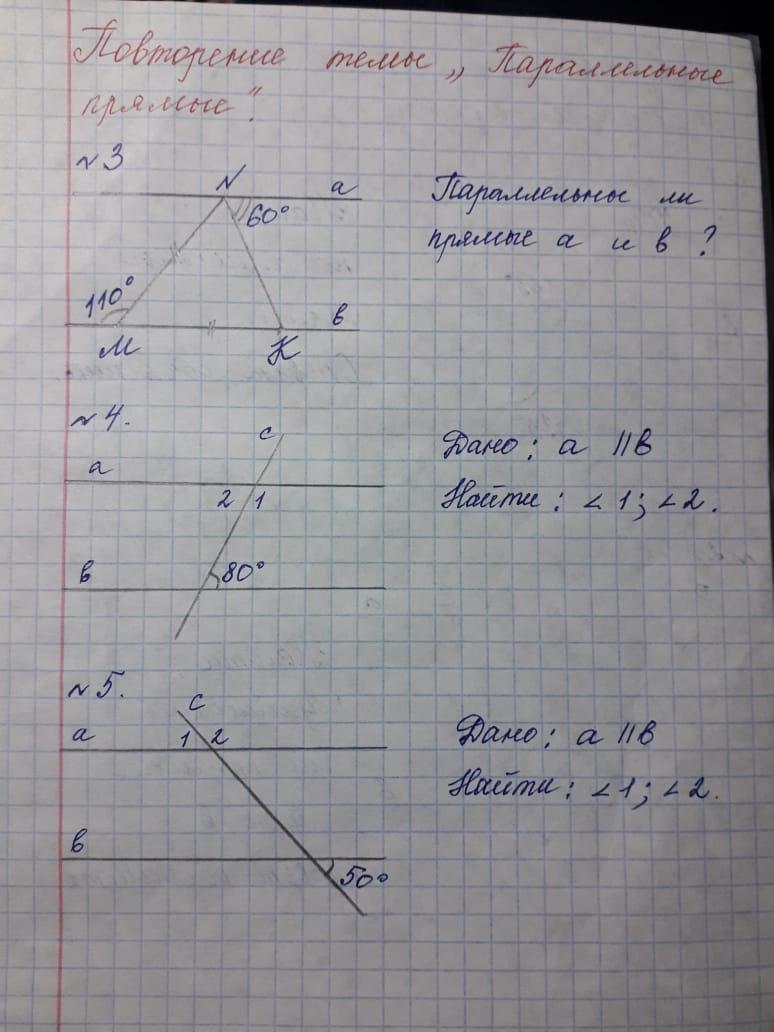 Повторение темы „Параллельные
прямые".
№3
N a
60°
110°
M K в
Параллельны ли
прямые а и в ?
№4.
c
a
2 1
в 80°
Дано: а ||в
Найти: ∠1; ∠2.
№5.
c
a 1 2
в
50°
Дано: а ||в
Найти: ∠1; ∠2.